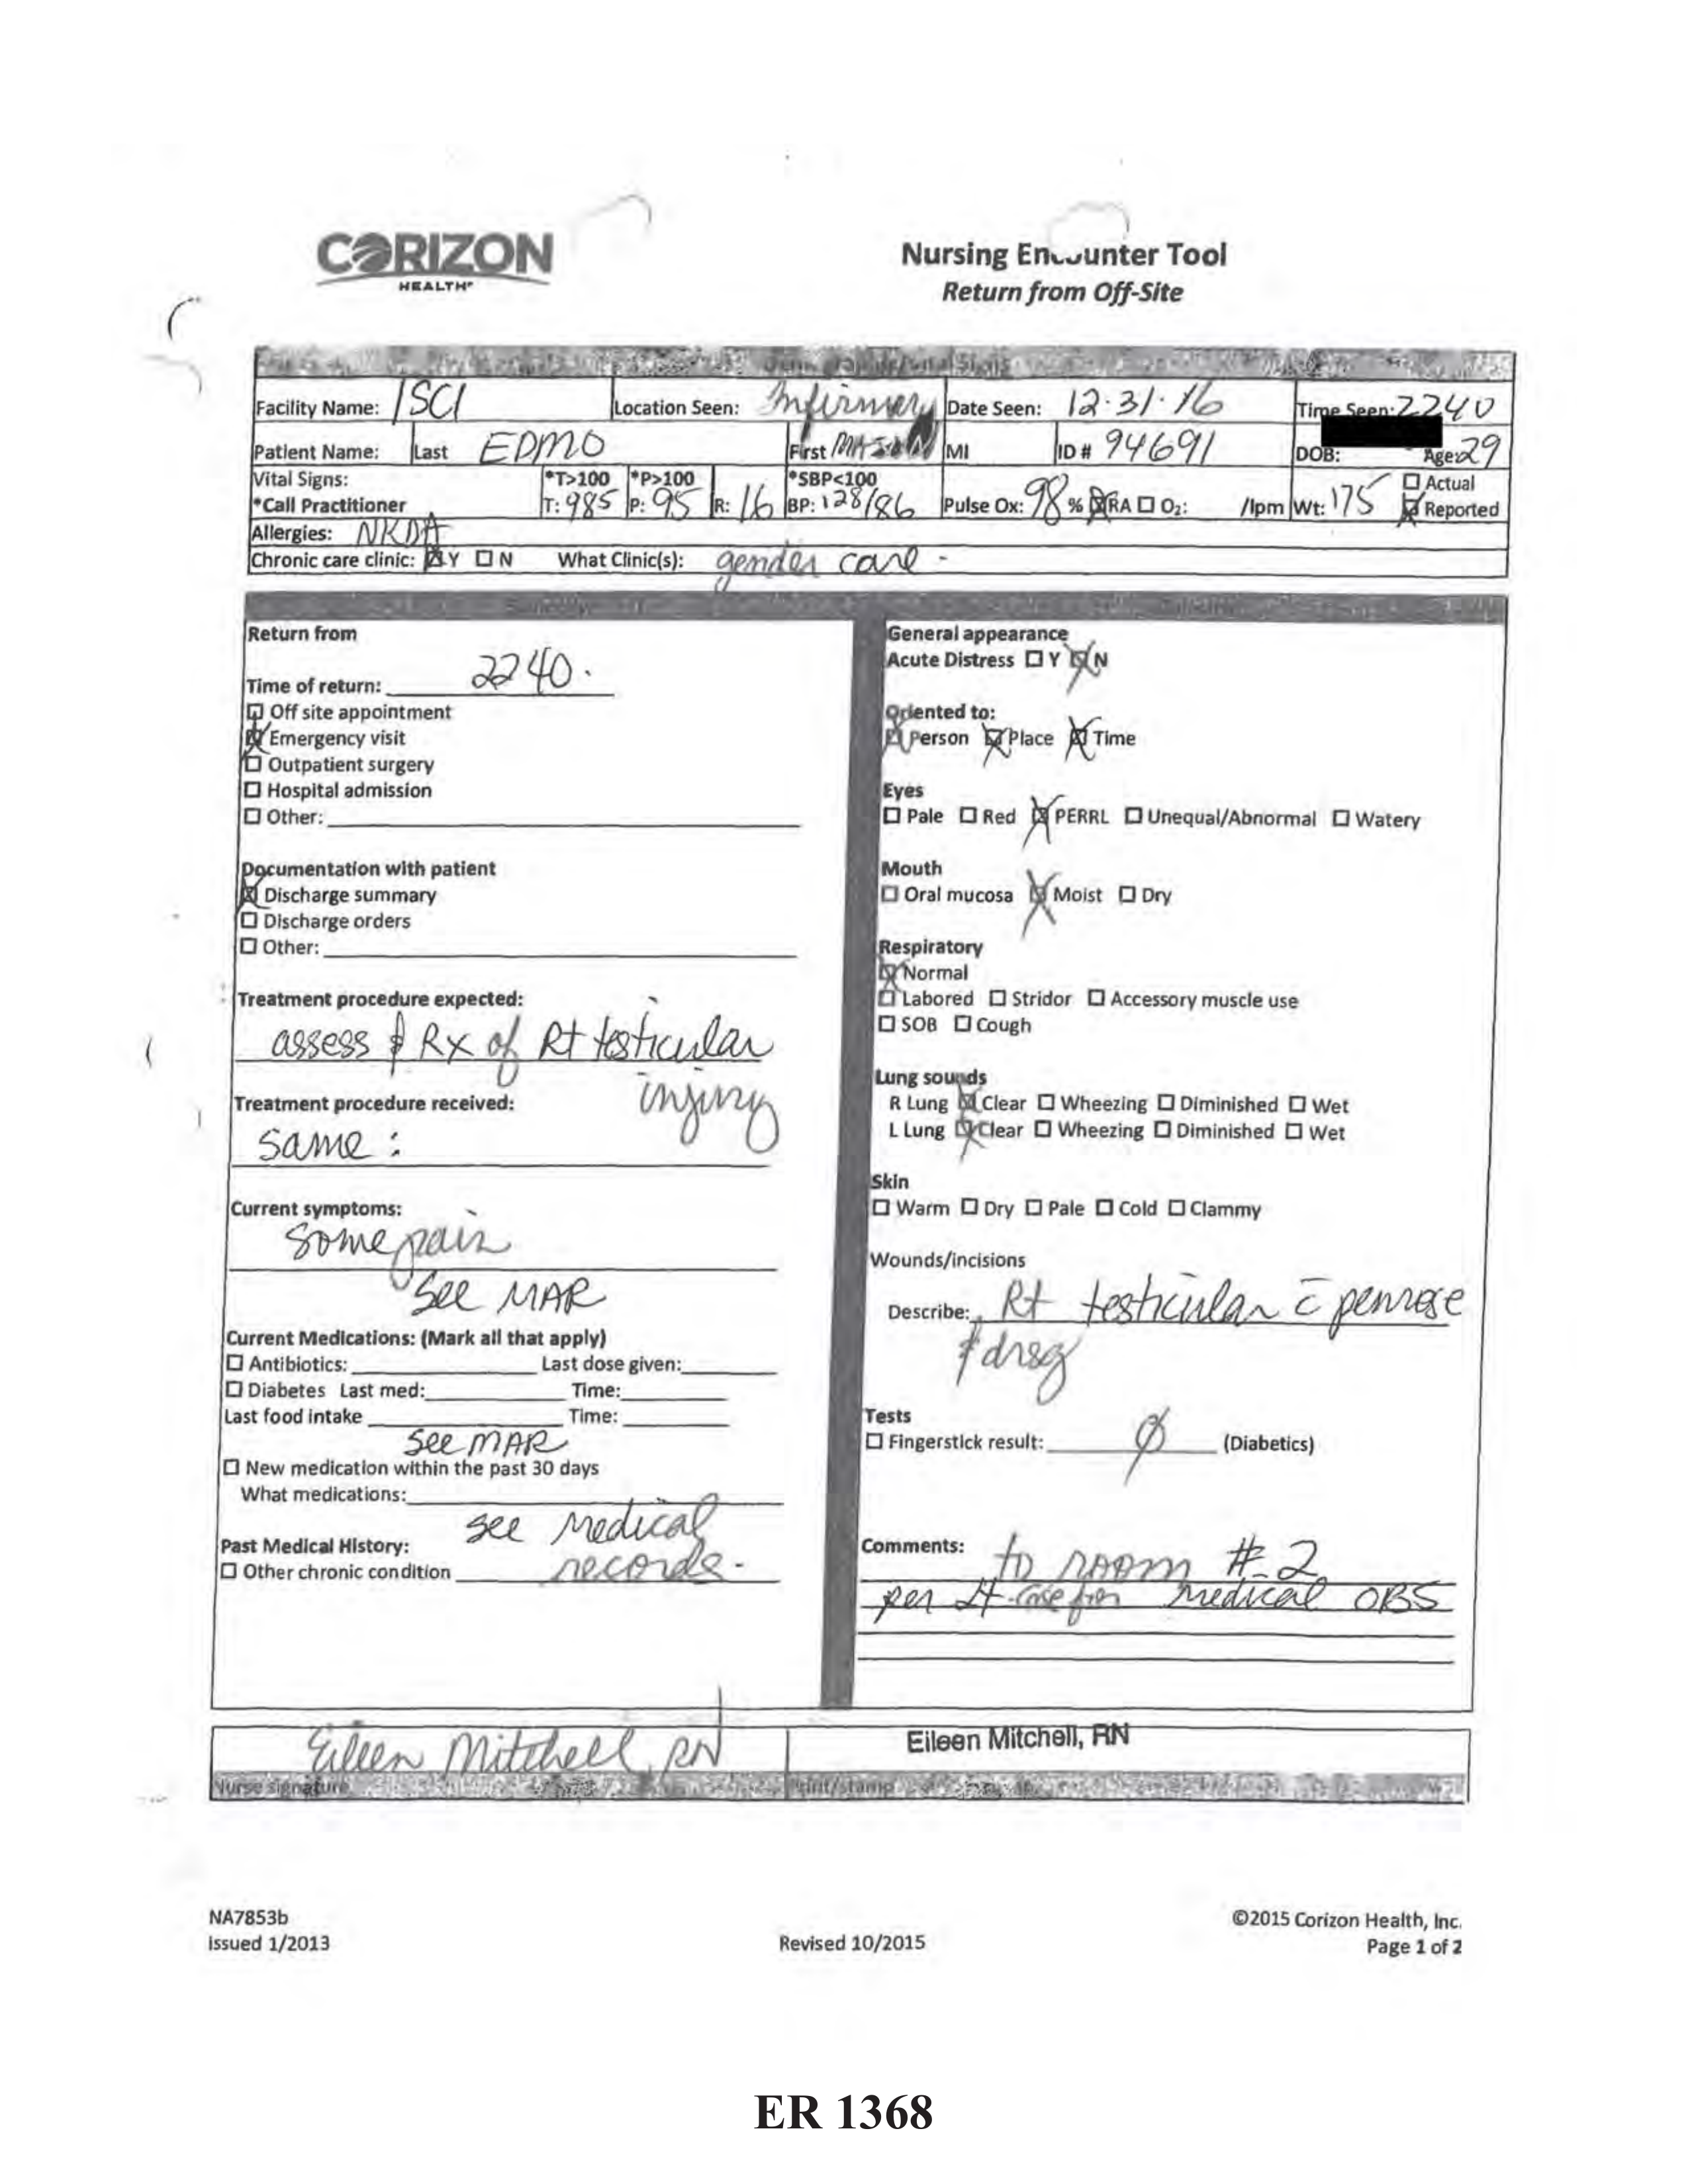 CORIZON
HEALTH
Nursing Encounter Tool
Return from Off-Site
Facility Name: ISCI Location Seen: Infirmary Date Seen: 12.31.16 Time Seen: 2240
Patient Name: Last EDMO First MASON MI ID # 94691 DOB: Age: 29
Vital Signs: *T>100 *P>100 *SBP<100 ☐ Actual
*Call Practitioner T: 985 P: 95 R: 16 BP: 128/86 Pulse Ox: 98 % ☒ RA ☐ O₂: /lpm Wt: 175 ☒ Reported
Allergies: NKDA
Chronic care clinic: ☒ Y ☐ N What Clinic(s): gender care -
Return from
Time of return: 2240.
☐ Off site appointment
☒ Emergency visit
☐ Outpatient surgery
☐ Hospital admission
☐ Other:
Documentation with patient
☒ Discharge summary
☐ Discharge orders
☐ Other:
Treatment procedure expected:
assess & Rx of Rt testicular
injury
Treatment procedure received:
same :
Current symptoms:
some pain
See MAR
Current Medications: (Mark all that apply)
☐ Antibiotics: Last dose given:
☐ Diabetes Last med: Time:
Last food intake Time:
See MAR
☐ New medication within the past 30 days
What medications:
see Medical
Past Medical History:
☐ Other chronic condition records -
General appearance
Acute Distress ☐ Y ☒ N
Oriented to:
☒ Person ☒ Place ☒ Time
Eyes
☐ Pale ☐ Red ☒ PERRL ☐ Unequal/Abnormal ☐ Watery
Mouth
☐ Oral mucosa ☒ Moist ☐ Dry
Respiratory
☒ Normal
☐ Labored ☐ Stridor ☐ Accessory muscle use
☐ SOB ☐ Cough
Lung sounds
R Lung ☒ Clear ☐ Wheezing ☐ Diminished ☐ Wet
L Lung ☒ Clear ☐ Wheezing ☐ Diminished ☐ Wet
Skin
☐ Warm ☐ Dry ☐ Pale ☐ Cold ☐ Clammy
Wounds/incisions
Describe: Rt testicular c̄ penrose
& drsg
Tests
☐ Fingerstick result: Ø (Diabetics)
Comments: to room #2
per for medical OBS
Eileen Mitchell, RN Eileen Mitchell, RN
Nurse signature Print/stamp
NA7853b
Issued 1/2013
Revised 10/2015
©2015 Corizon Health, Inc.
Page 1 of 2
ER 1368